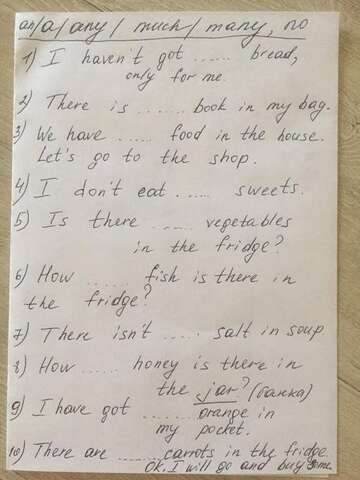 an/a/any/ much/ many, no
1) I haven't got ...... bread,
only for me.
2) There is ....... book in my bag.
3) We have ...... food in the house.
Let's go to the shop.
4) I don't eat ...... sweets.
5) Is there ...... vegetables
in the fridge?
6) How ...... fish is there in
the fridge?
7) There isn't ..... salt in soup
8) How ..... honey is there in
the jar? (банка)
9) I have got ....... orange in
my pocket.
10) There are ...... carrots in the fridge
Ok. I will go and buy some.